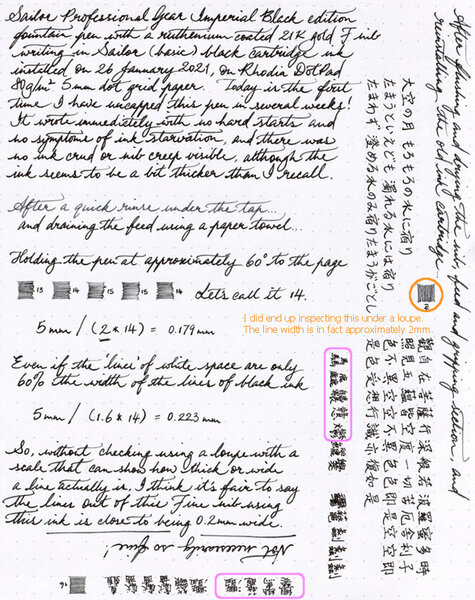 Sailor Professional Gear Imperial Black edition
fountain pen with a ruthenium coated 21K gold F nib
writing in Sailor (basic) black cartridge ink
installed on 26 January 2021, on Rhodia DotPad
80g/m² 5mm dot grid paper. Today is the first
time I have uncapped this pen in several weeks!
It wrote immediately with no hard starts and
no symptoms of ink starvation, and there was
no ink crud or nib creep visible, although the
ink seems to be a bit thicker than I recall.
After a quick rinse under the tap...
and draining the feed using a paper towel...
Holding the pen at approximately 60° to the page
15 14 15 15 14 Let's call it 14.
5mm / (2*14) = 0.179 mm
Even if the 'lines' of white space are only
60% the width of the lines of black ink
5mm / (1.6*14) = 0.223mm
So, without checking using a loupe with a
scale that can show how thick or wide
a line actually is, I think it's fair to say
the lines out of this Fine nib using
this ink is close to being 0.2mm wide.
Not necessarily so fine!
16
After flushing and drying the nib, feed and gripping section, and
reinstalling the old ink cartridge...
14
I did end up inspecting this under a loupe.
The line width is in fact approximately 2mm.
大空の月 もろもろの水に宿り
たまうといえども 濁れる水には宿り
たまわず 澄める水のみ宿りたまうがごとし
觀自在菩薩行深般若波羅蜜多時
照見五蘊皆空度一切苦厄舎利子
色不異空空不異色色即是空空即
是色受想行識亦復如是